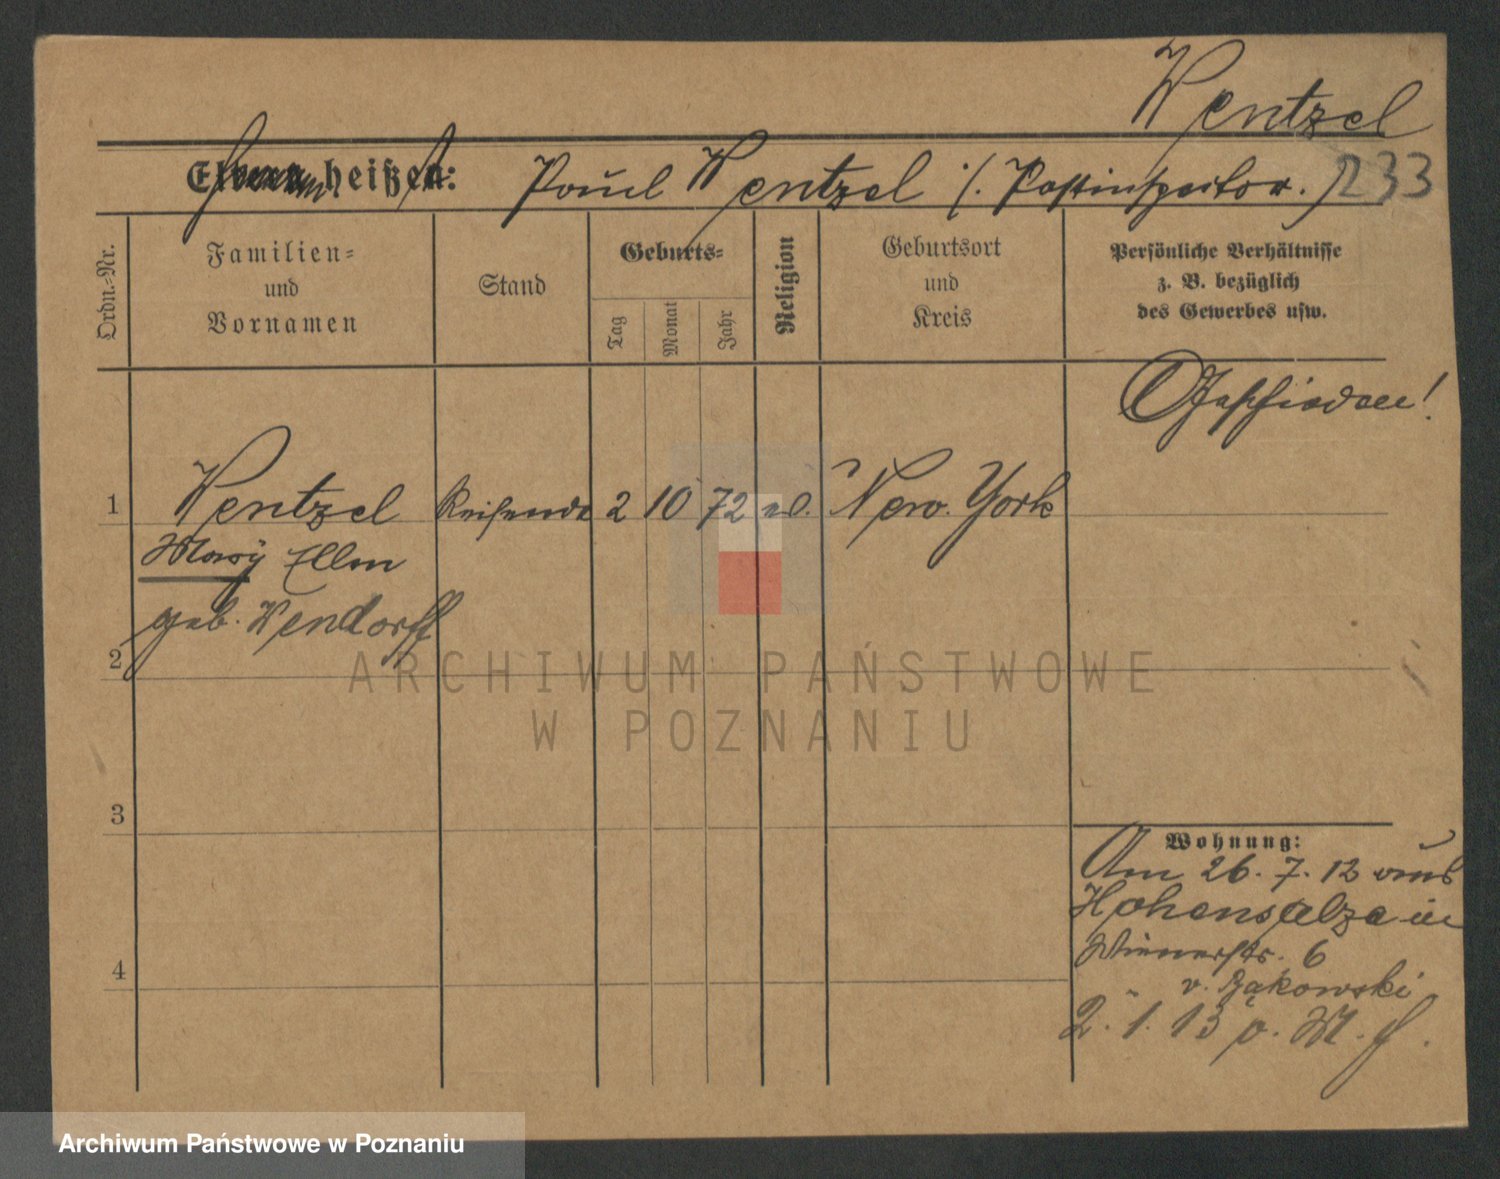 Wentzel
Eltern heißen: Paul Wentzel /. Postinspektor.
233
Ordn.-Nr.
Familien-
und
Vornamen
Stand
Geburts-
Tag
Monat
Jahr
Religion
Geburtsort
und
Kreis
Persönliche Verhältnisse
z. B. bezüglich
des Gewerbes usw.
Geschieden!
1 Wentzel Reisende 2 10 72 New. York
Mary Ellen
geb. Wendorff
2
3
4
Wohnung:
Am 26. 7. 12 aus
Hohensalza in
Wienerstr. 6
v. Żakowski
2. 1. 13
ARCHIWUM PAŃSTWOWE
W POZNANIU
Archiwum Państwowe w Poznaniu